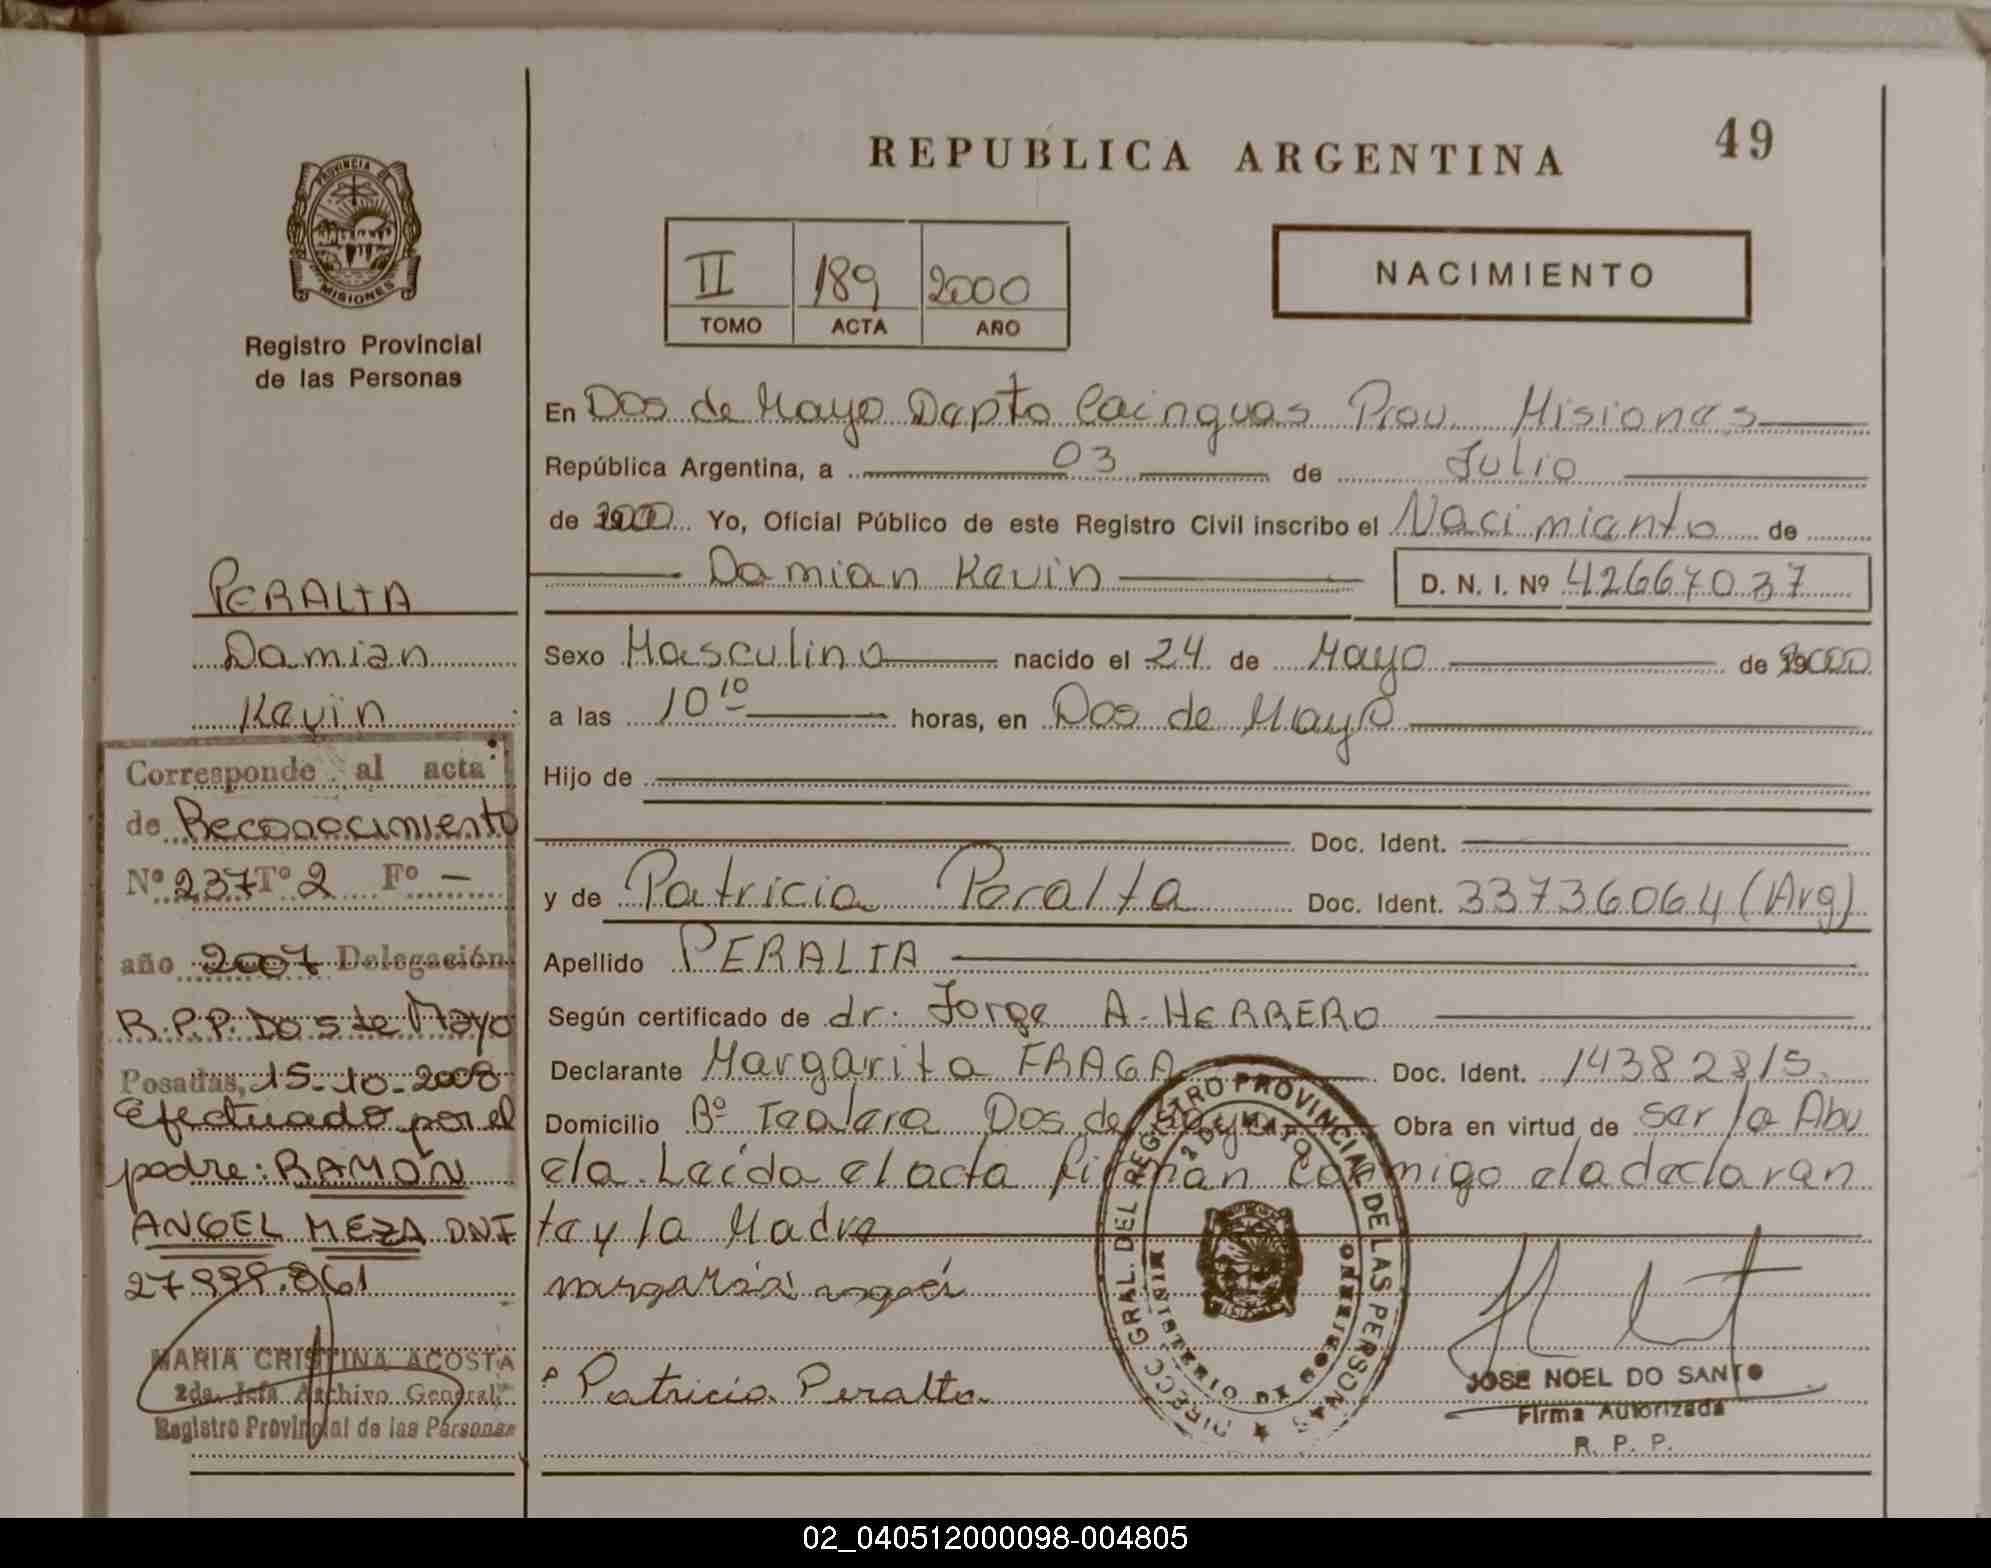 REPUBLICA ARGENTINA
49
PROVINCIA DE
MISIONES
Registro Provincial
de las Personas
II 189 2000
TOMO ACTA AÑO
NACIMIENTO
En Dos de Mayo Dapto Cainguas Prov. Misiones
República Argentina, a 03 de Julio
de 2000 Yo, Oficial Público de este Registro Civil inscribo el Nacimianto de
Damian Kevin D. N. I. Nº 42667037
Sexo Masculino nacido el 24 de Mayo de 2000
a las 10 10 horas, en Dos de Mayo
Hijo de
Doc. Ident.
y de Patricia Peralta Doc. Ident. 33736064 (Arg)
Apellido PERALTA
Según certificado de dr. Jorge A. HERRERO
Declarante Margarita FRAGA Doc. Ident. 14382815
Domicilio Bº Tealera Dos de Mayo Obra en virtud de ser la Abu
ela. Leída el acta firman conmigo ela declaran
te y la Madre
Patricia Peralta
JOSE NOEL DO SANTO
Firma Autorizada
R. P. P.
DIRECC. GRAL. DEL REGISTRO PROVINCIAL DE LAS PERSONAS
2 DE MAYO
MINISTERIO DE GOBIERNO
PERALTA
Damian
Kevin
Corresponde al acta
de Reconocimiento
Nº 237 Tº 2 Fº -
año 2007 Delegación
R.P.P. Dos de Mayo
Posadas, 15-10-2008
Efectuado por el
padre: RAMÓN
ANGEL MEZA DNI
27.999.861
MARIA CRISTINA ACOSTA
2da. Jefa Archivo General
Registro Provincial de las Personas
02_040512000098-004805